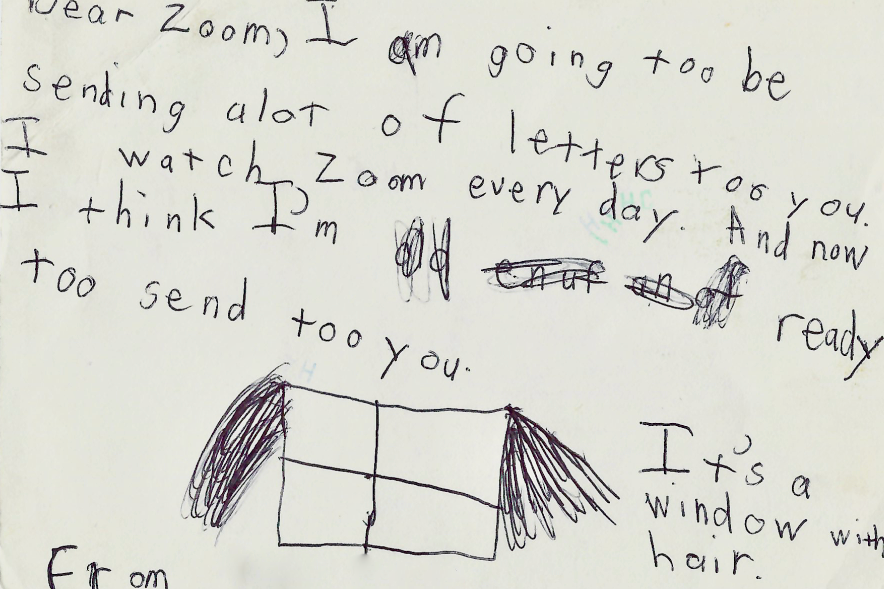 Dear Zoom, I am going too be
sending alot of letters too you.
I watch Zoom every day. And now
I think I'm old enuf an ready
too send too you.
It's a
window with
hair.
From